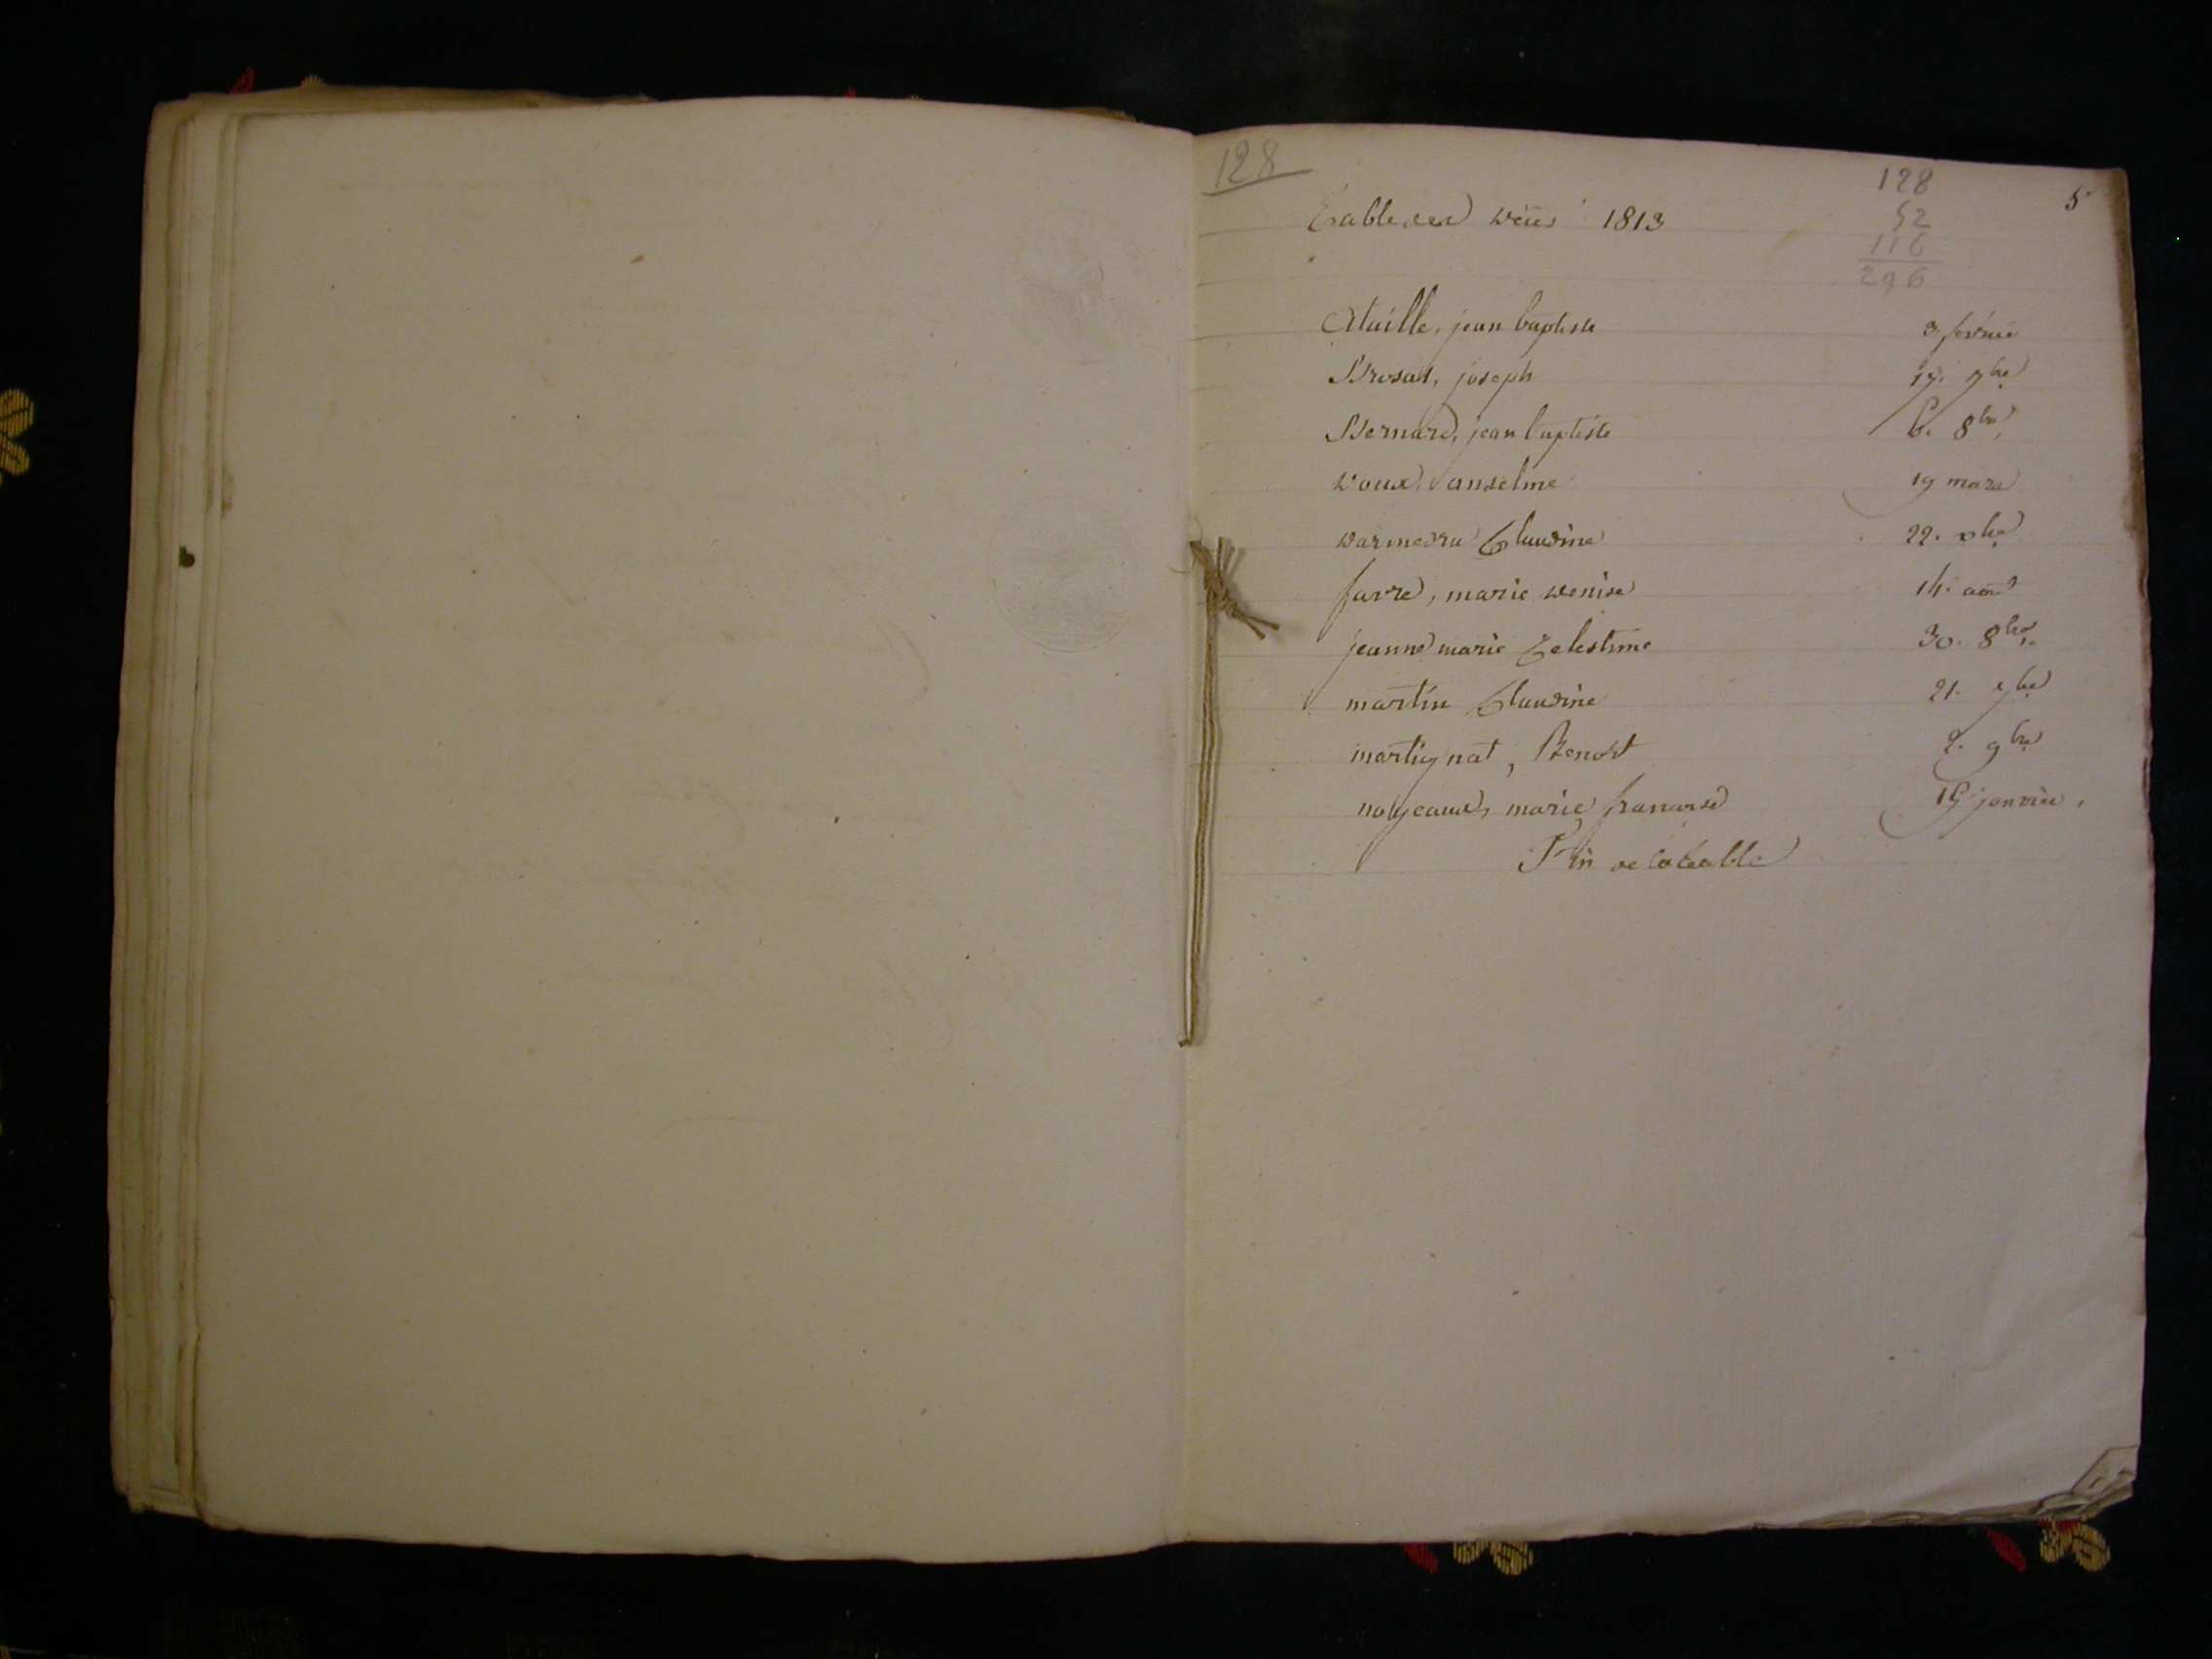 128
128
52
116
296
5
Table des décès 1813
Ataille, jean baptiste 3. février
Brosat, joseph 17. 7bre
Bernard, jean baptiste 6. 8bre
doux, anselme 19 mars
Claudine 22. xbre
favre, marie denise 14. aout
jeanne marie Celestine 30. 8bre
martin Claudine 21.
martignat, Benoit 2. 9bre
marie francoise janvier
Fin de la table